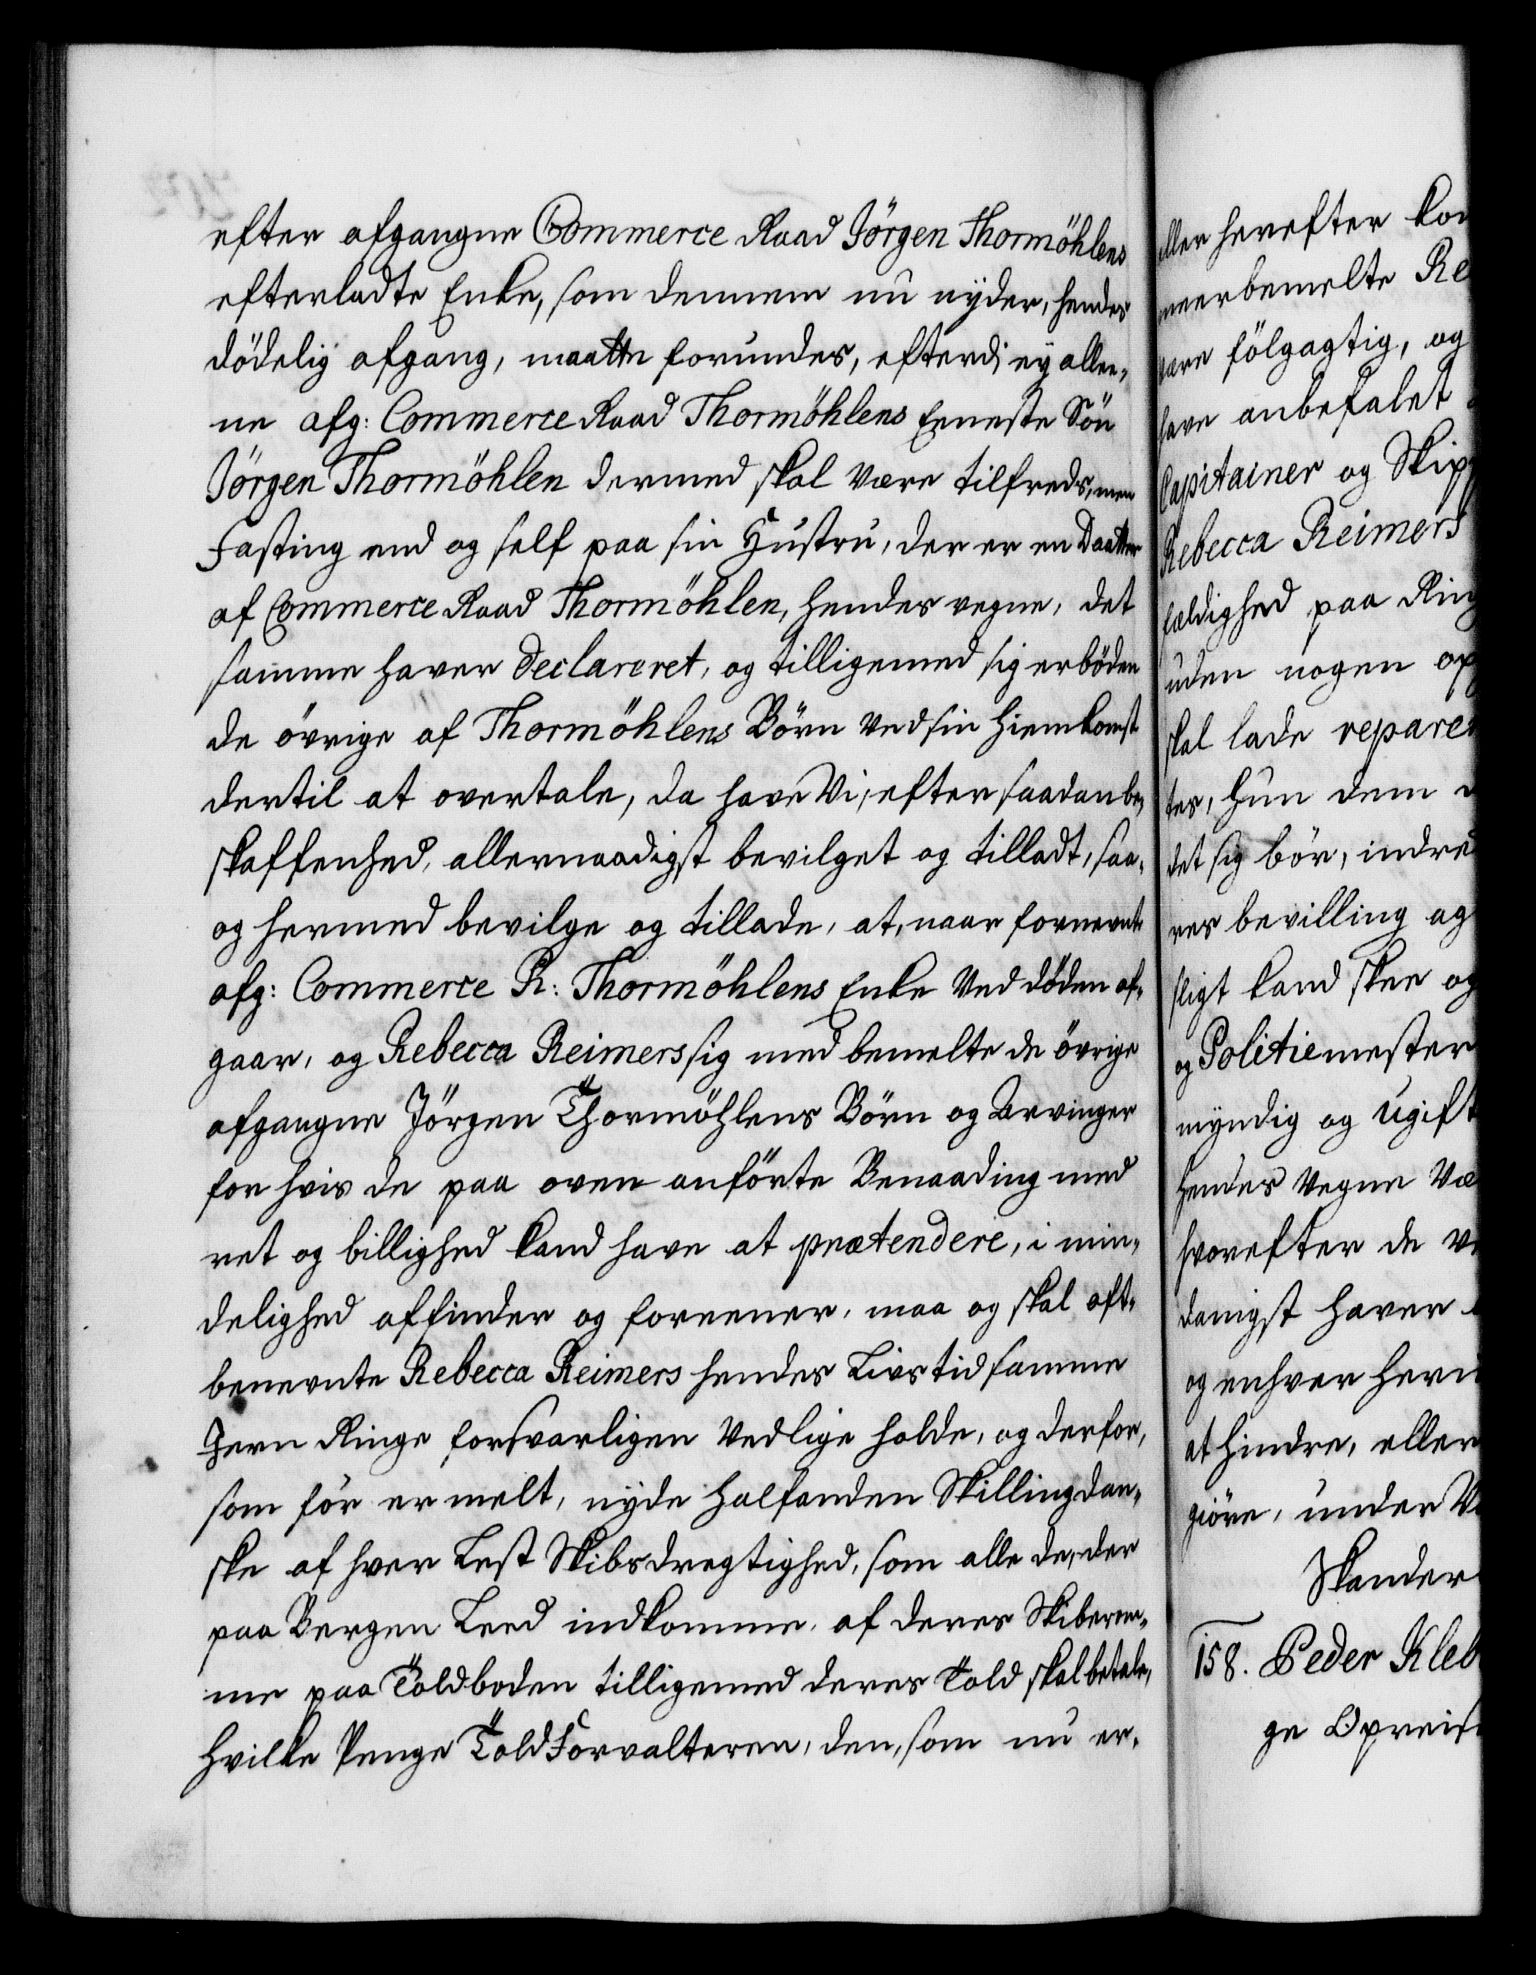 efter afgangne Commerce Raad Jörgen Thormöhlens
efterladte Enke, som dennem nu nyder, hendes
dödelig afgang, maatte forundes, efterdj ey allee,
ne afg: Commerce Raad Thormöhlens Eeneste Sön
Jörgen Thormöhlen dermed skal være tilfreds, men
Fasting end og self paa sin Hustru, der er en Daatter
af Commerce Raad Thormöhlen, hendes vegne, det
samme haver declareret, og tilligemed sig erböden
de övrige af Thormöhlens Börn ved sin Hiemkomst
dertil at overtale, da have Vi, efter saadan be,
skaffenhed, allernaadigst bevilget og tilladt, saa,
og hermed bevilge og tillade, at, naar fornevnte
afg: Commerce R: Thormöhlens Enke Ved döden af,
gaar, og Rebecca Reimers sig med bemelte de övrige
afgangne Jörgen Thormöhlens Börn og Arvinger
for hvis de paa oven anförte Benaading med
ret og billighed kand have at prætendere, i min,
delighed affinder og foreener, maa og skal oft,
benevnte Rebecca Reimers hendes Livs tid samme
Jern Ringe forsvarligen Vedlige holde, og derfor,
som för er melt, nyde halfanden Skilling dan,
ske af hver Lest Skibs dregtighed, som alle de, der
paa Bergen Leed indkomme, af deres Skibe rem,
me paa Toldboden tilligemed deres Told skal betale,
hvilke Penge Told Forvalteren, den, som nu er,
eller herefter kom
meerbemelte Re
være fölgagtig, og
have anbefalet
Capitainer og Skipp
Rebecca Reimers
fældighed paa Ring
uden nogen op
skal lade reparer
tes, hun dem d
det sig bör, indre
res bevilling ag
sligt kand skee og
og Politiemester
myndig og ugift
hendes Vegne Væ
hvorefter de v
danigst haver
og enhver heri
at hindre, eller
giöre, under V
Skander
158. Peder Kleb
ge Opreis